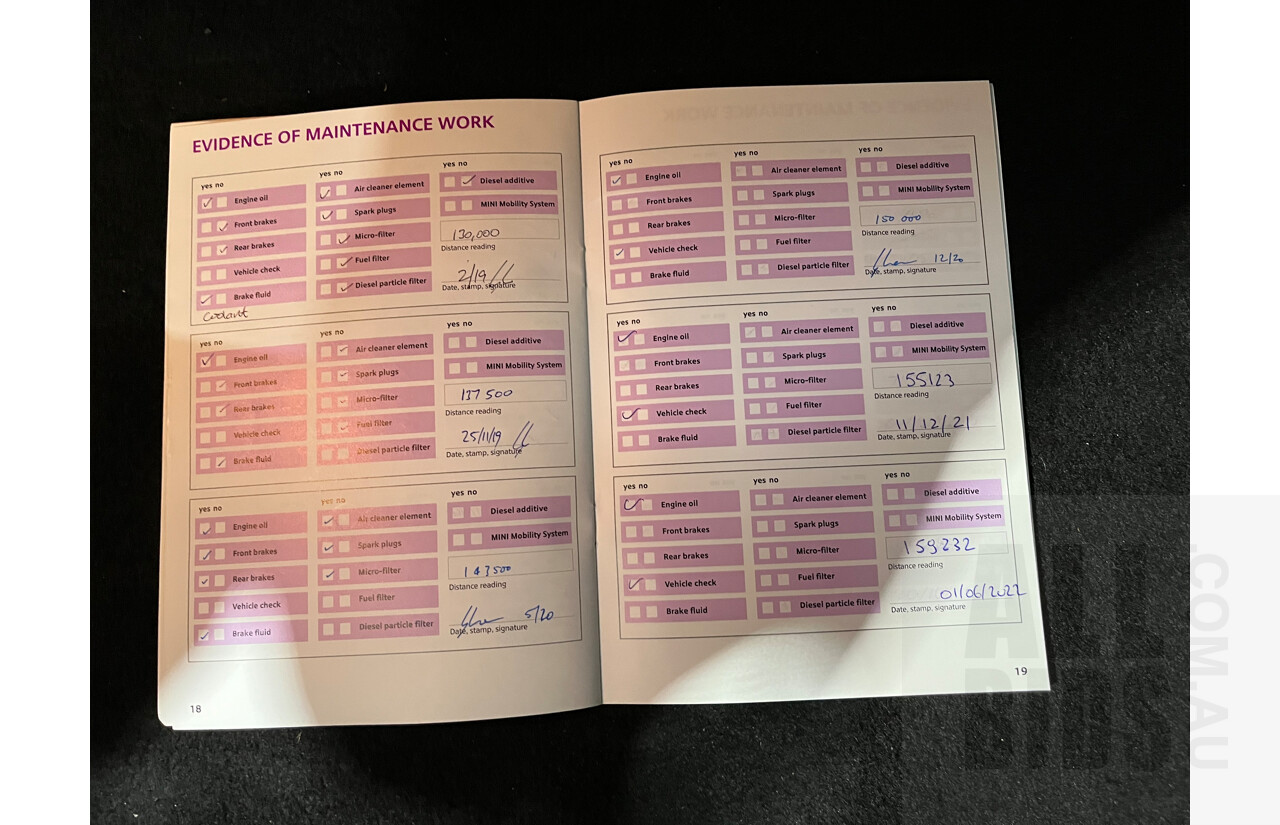 EVIDENCE OF MAINTENANCE WORK
yes no
Engine oil
Front brakes
Rear brakes
Vehicle check
Brake fluid
Coolant
yes no
Air cleaner element
Spark plugs
Micro-filter
Fuel filter
Diesel particle filter
yes no
Diesel additive
MINI Mobility System
130,000
Distance reading
2/19
Date, stamp, signature
yes no
Engine oil
Front brakes
Rear brakes
Vehicle check
Brake fluid
yes no
Air cleaner element
Spark plugs
Micro-filter
Fuel filter
Diesel particle filter
yes no
Diesel additive
MINI Mobility System
137 500
Distance reading
25/11/19
Date, stamp, signature
yes no
Engine oil
Front brakes
Rear brakes
Vehicle check
Brake fluid
yes no
Air cleaner element
Spark plugs
Micro-filter
Fuel filter
Diesel particle filter
yes no
Diesel additive
MINI Mobility System
143500
Distance reading
5/20
Date, stamp, signature
18
yes no
Engine oil
Front brakes
Rear brakes
Vehicle check
Brake fluid
yes no
Air cleaner element
Spark plugs
Micro-filter
Fuel filter
Diesel particle filter
yes no
Diesel additive
MINI Mobility System
150 000
Distance reading
12/20
Date, stamp, signature
yes no
Engine oil
Front brakes
Rear brakes
Vehicle check
Brake fluid
yes no
Air cleaner element
Spark plugs
Micro-filter
Fuel filter
Diesel particle filter
yes no
Diesel additive
MINI Mobility System
155123
Distance reading
11/12/21
Date, stamp, signature
yes no
Engine oil
Front brakes
Rear brakes
Vehicle check
Brake fluid
yes no
Air cleaner element
Spark plugs
Micro-filter
Fuel filter
Diesel particle filter
yes no
Diesel additive
MINI Mobility System
159232
Distance reading
01/06/2022
Date, stamp, signature
19
ALL
BIDS
.COM.AU